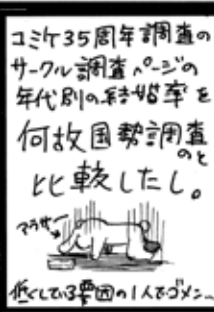 コミケ35周年調査の
サークル調査ページの
年代別の結婚率を
何故国勢調査
のと
比較したし。
アラサー
低くしている要因の1人でゴメン…